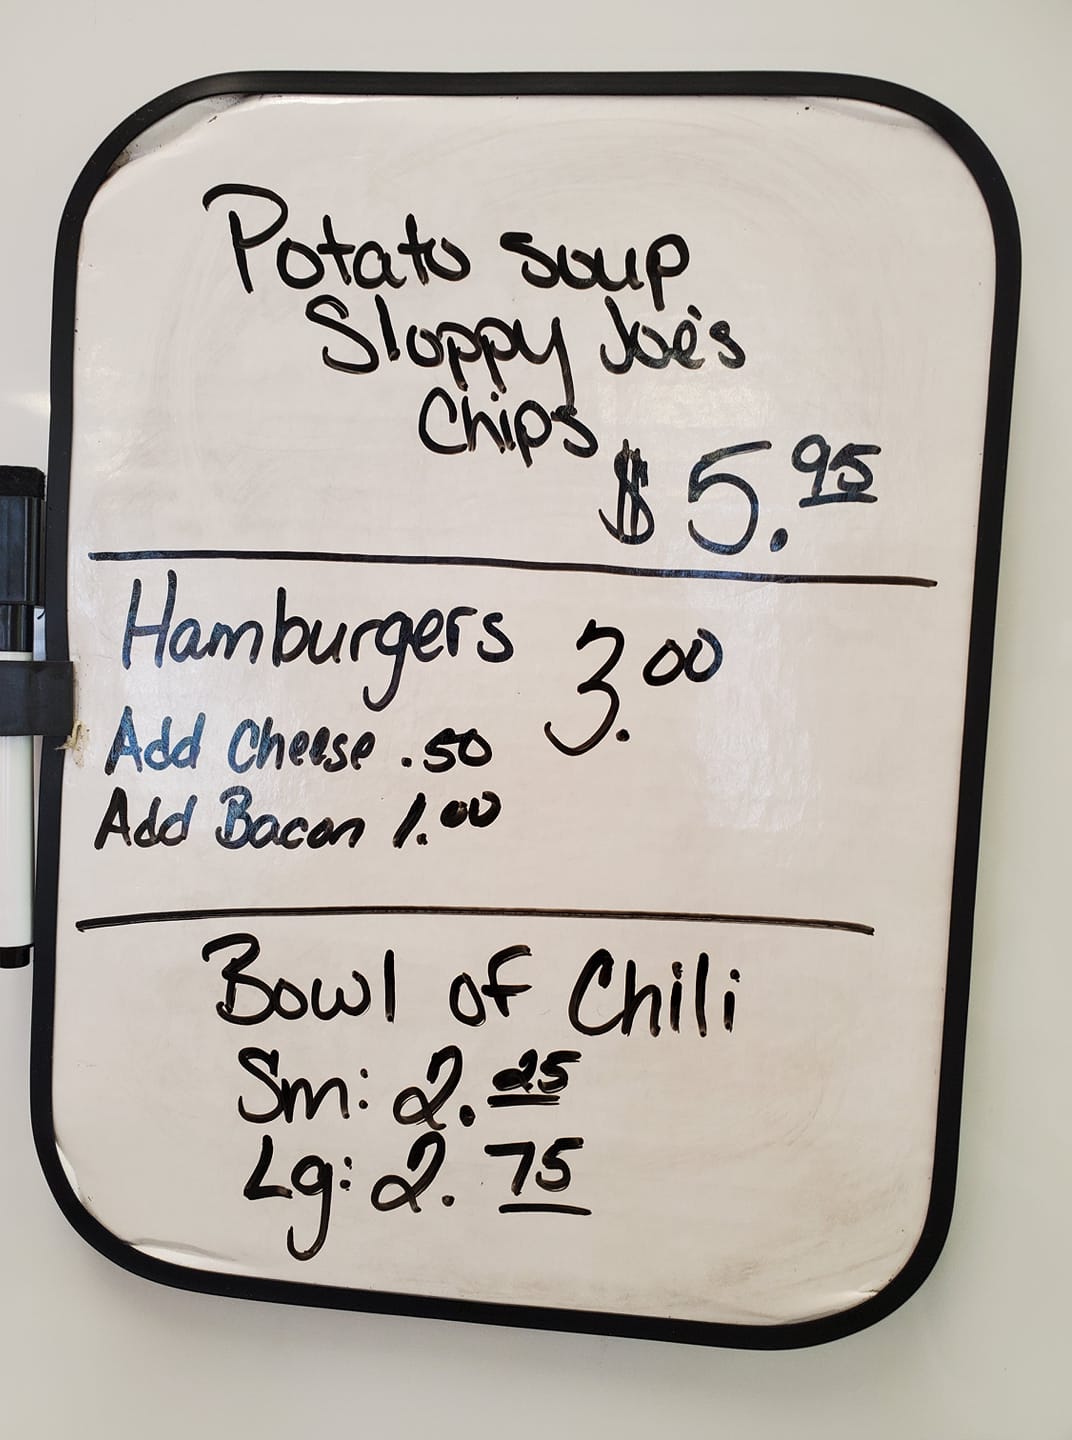 Potato Soup
Sloppy Joe's
Chips
$5.95
Hamburgers 3.00
Add Cheese .50
Add Bacon 1.00
Bowl of Chili
Sm: 2.25
Lg: 2.75